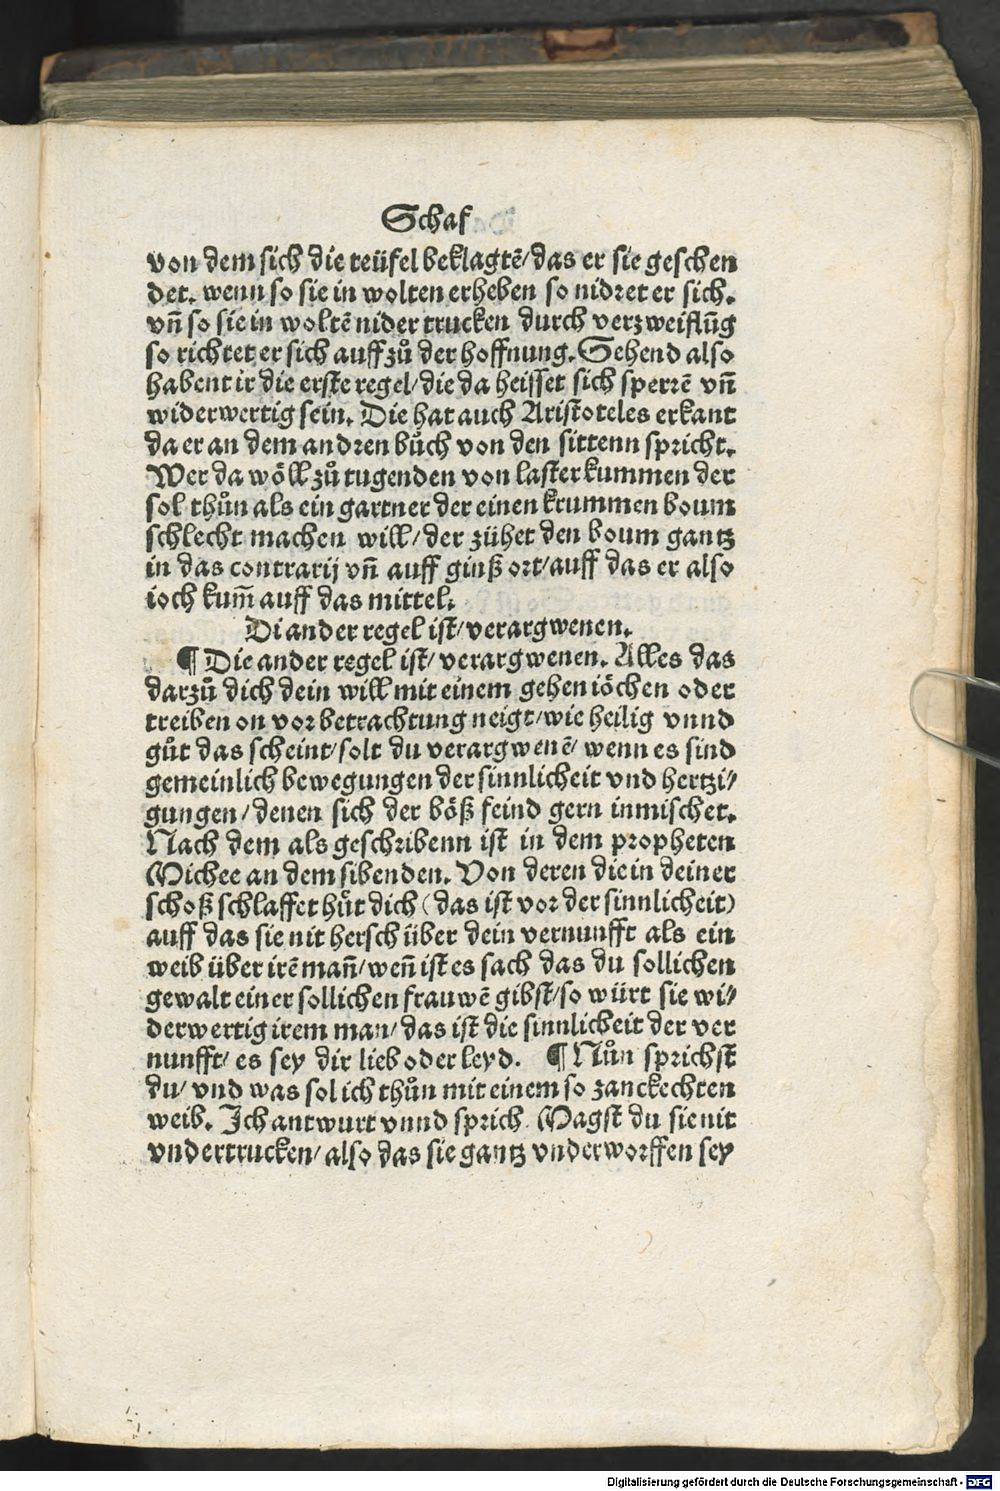 Schaf
von dem sich die teüfel beklagtē/das er sie geschen
det. wenn so sie in wolten erheben so nidret er sich.
vn̄ so sie in woltē nider trucken durch verzweiflūg
so richtet er sich auff zů der hoffnung. Sehend also
habent ir die erste regel/die da heisset sich sperrē vn̄
widerwertig sein. Die hat auch Aristoteles erkant
da er an dem andren bůch von den sittenn spricht.
Wer da wöll zů tugenden von laster kummen der
sol thůn als ein gartner der einen krummen boum
schlecht machen will/der zühet den boum gantz
in das contrarij vn̄ auff ginß ort/auff das er also
ioch kum̄ auff das mittel.
Di ander regel ist/verargwenen.
¶ Die ander regel ist/verargwenen. Alles das
darzů dich dein will mit einem gehen iöchen oder
treiben on vorbetrachtung neigt/wie heilig vnnd
gůt das scheint/solt du verargwenē/wenn es sind
gemeinlich bewegungen der sinnlicheit vnd hertzi⸗
gungen/denen sich der böß feind gern inmischet.
Nach dem als geschribenn ist in dem propheten
Michee an dem sibenden. Von deren die in deiner
schoß schlaffet hůt dich (das ist vor der sinnlicheit)
auff das sie nit hersch über dein vernunfft als ein
weib über irē man̄/wen̄ ist es sach das du sollichen
gewalt einer sollichen frauwē gibst/so würt sie wi⸗
derwertig irem man/das ist die sinnlicheit der ver
nunfft/es sey dir lieb oder leyd. ¶ Nůn sprichst
du/vnd was sol ich thůn mit einem so zanckechten
weib. Ich antwurt vnnd sprich. Magst du sie nit
vndertrucken/also das sie gantz vnderworffen sey
Digitalisierung gefördert durch die Deutsche Forschungsgemeinschaft - DFG